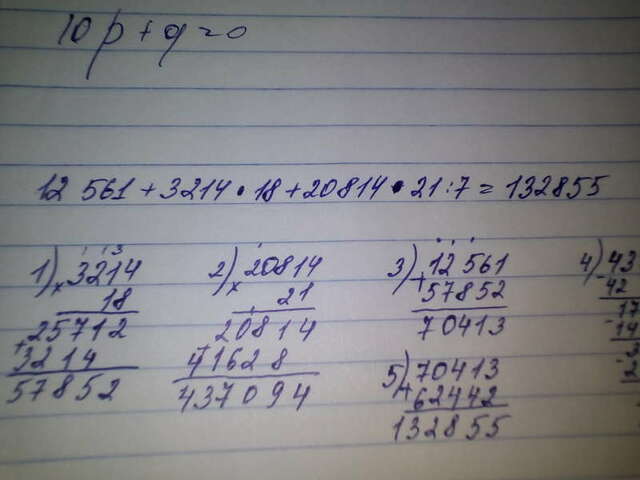 10p+q=0
12 561+3214·18+20814·21:7=132855
1) ×3214
18
+25712
3214
57852
2) ×20814
21
+20814
41628
437094
3) +12561
57852
70413
4) 43
-42
17
-14
5) +70413
62442
132855